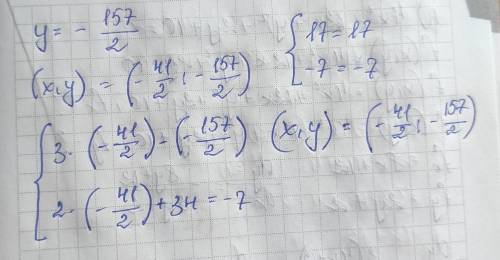 y = - 157/2
(x,y) = (- 41/2; - 157/2)
{ 17 = 17
-7 = -7
{ 3 · (- 41/2) - (- 157/2)
2 · (- 41/2) + 34 = -7
(x,y) = (- 41/2; - 157/2)